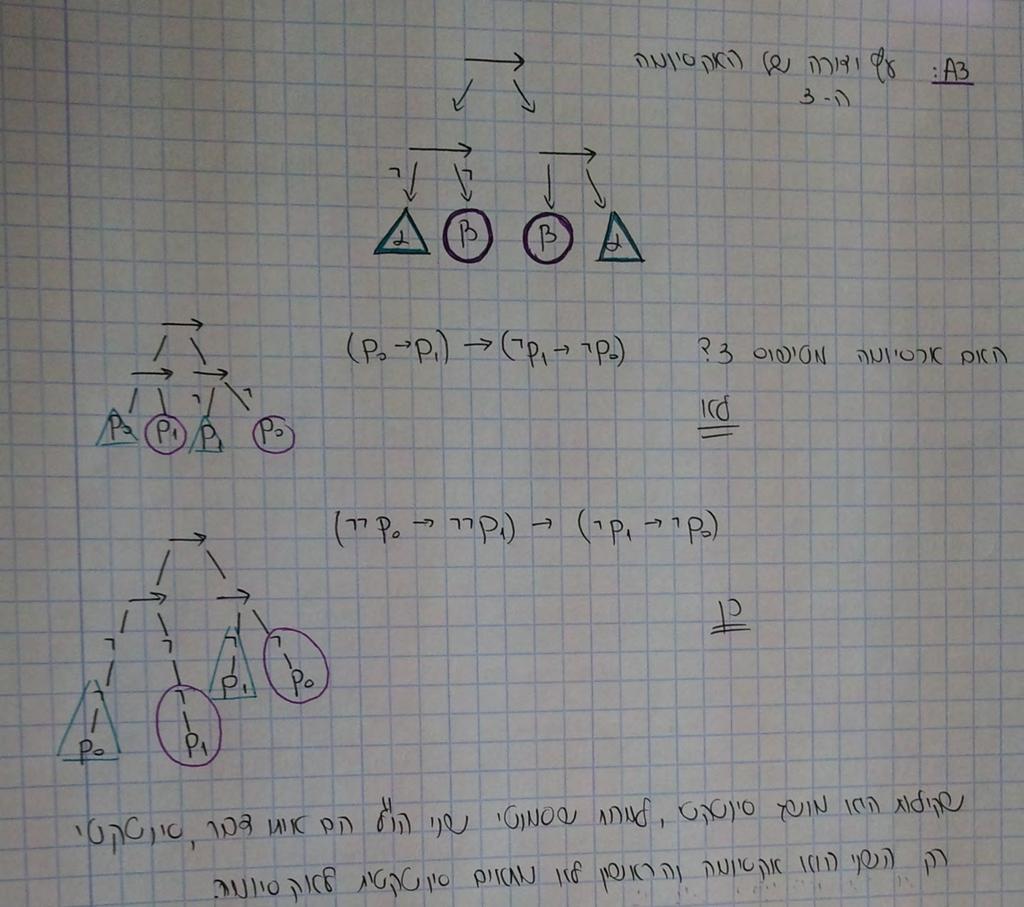 A3: עץ יצירה של האקסיומה
ה-3
→
→ →
¬ ¬
α β β α
האם אקסיומה מטיפוס 3? (p₀→p₁)→(¬p₁→¬p₀)
לא
→
→ →
¬ ¬
p₀ p₁ p₁ p₀
(¬¬p₀ → ¬¬p₁) → (¬p₁ → ¬p₀)
כן
→
→ →
¬ ¬ ¬ ¬
¬ ¬ p₁ p₀
p₀ p₁
שקילות הוא מושג סינטקטי, למרות שסמנטי שני הנ"ל הם אותו דבר, סינטקטי
רק השני הוא אקסיומה והראשון לא מתאים סינטקטית לאקסיומה.